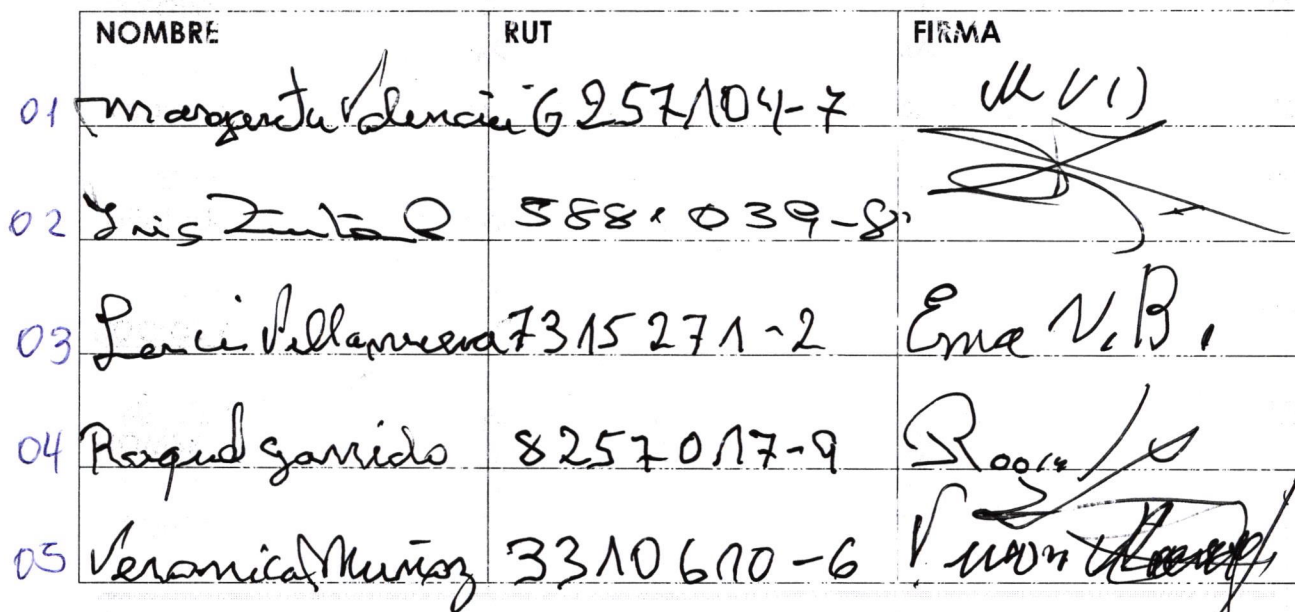 NOMBRE RUT FIRMA
01 Margarita Valencia 6257104-7 MVD
02 Iris 588.039-8
03 Villanueva 7315271-2 Ema V.B.
04 Raquel Garrido 8257017-9
05 Veronica Muñoz 3310610-6